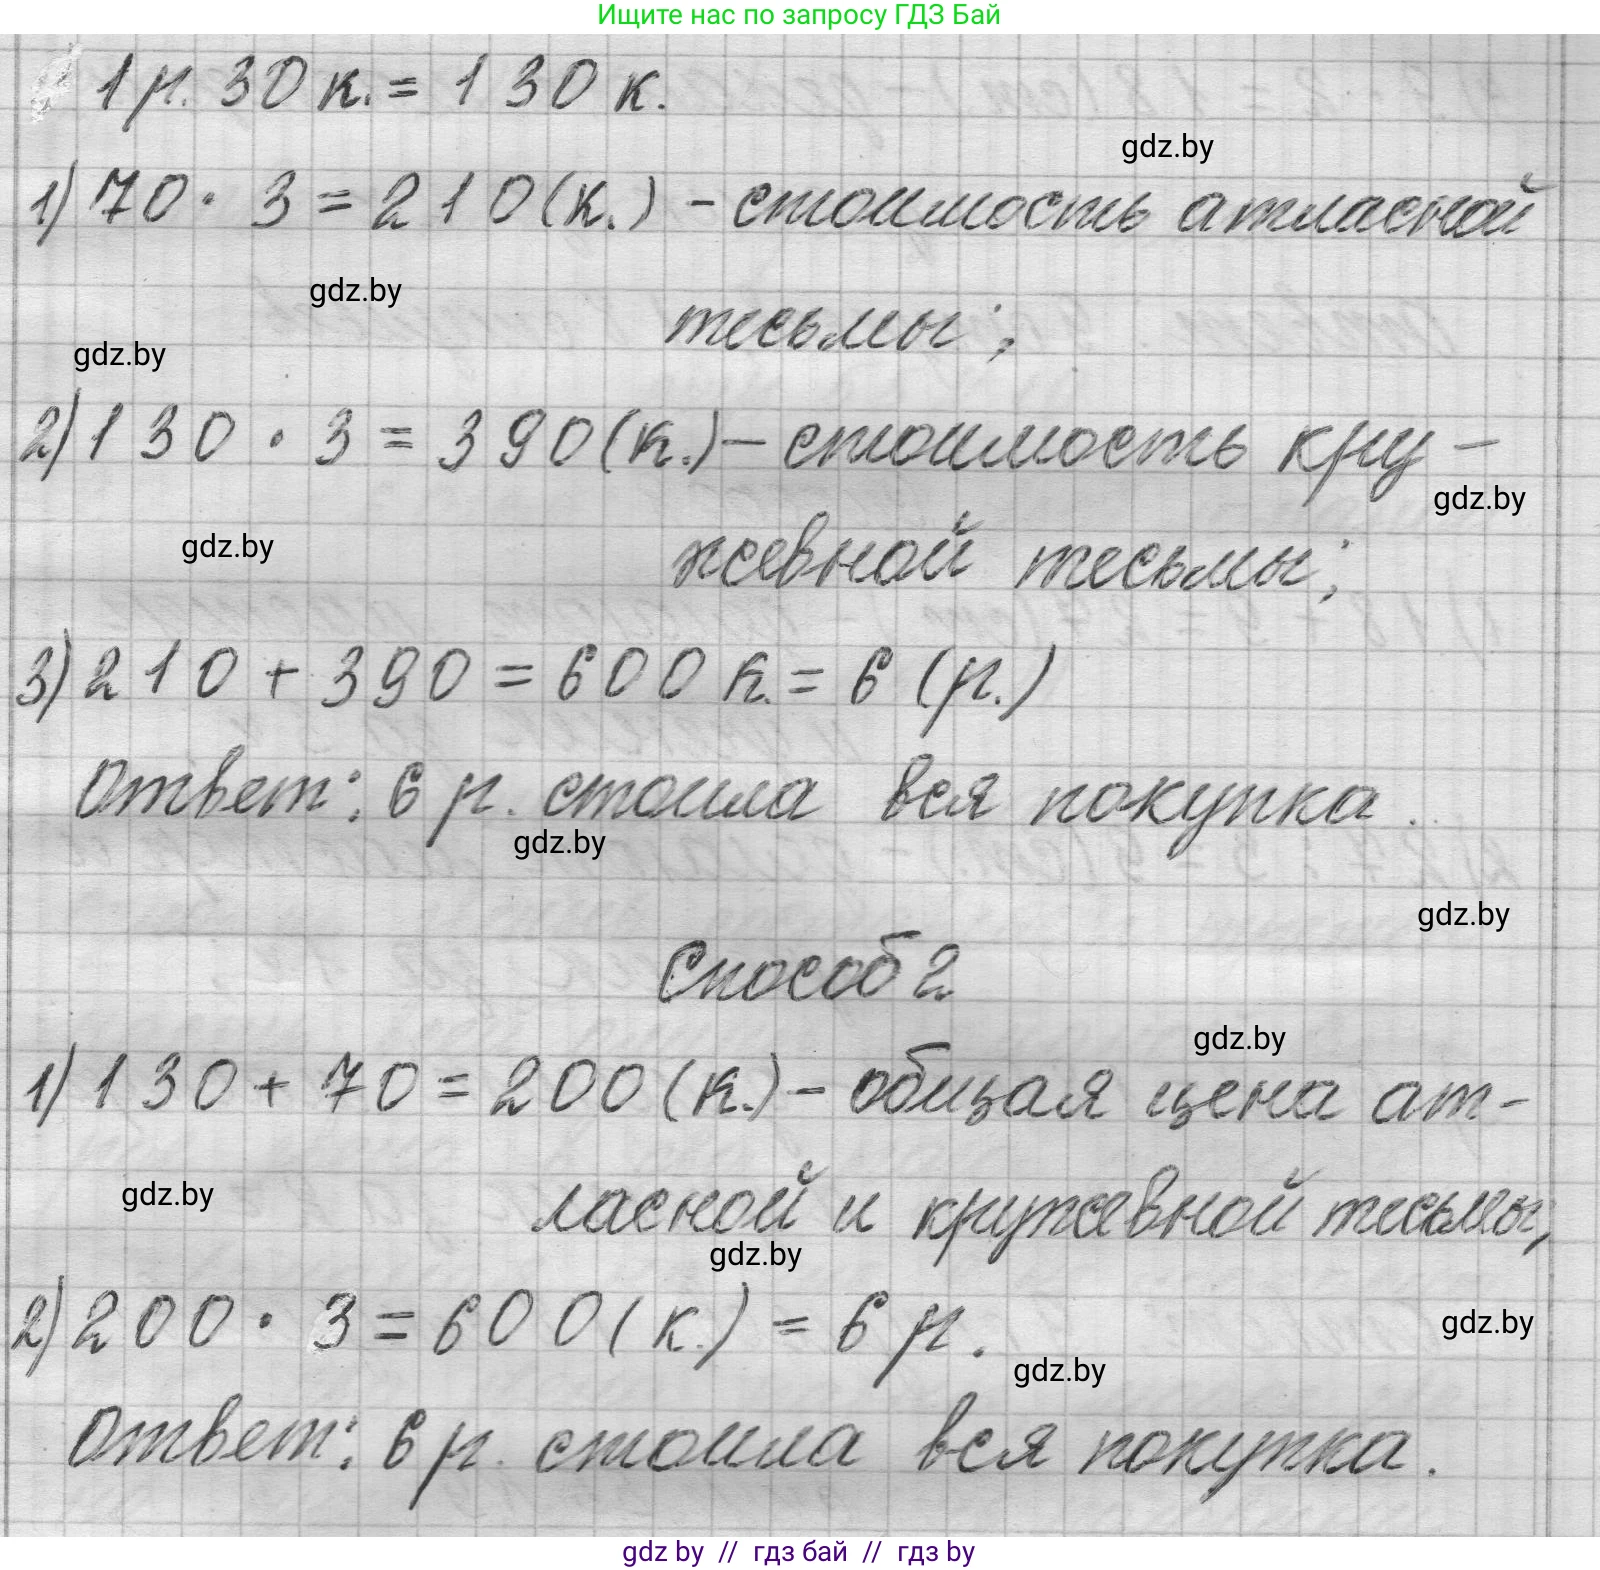 Ищите нас по запросу ГДЗ Бай
1 р. 30 к. = 130 к.
gdz.by
1) 70 · 3 = 210 (к.) - стоимость атласной
gdz.by
тесьмы;
gdz.by
2) 130 · 3 = 390 (к.) - стоимость кру-
gdz.by
gdz.by
жевной тесьмы;
3) 210 + 390 = 600 к. = 6 (р.)
Ответ: 6 р. стоила вся покупка.
gdz.by
gdz.by
Способ 2
gdz.by
1) 130 + 70 = 200 (к.) - общая цена ат-
gdz.by
ласной и кружевной тесьмы;
gdz.by
2) 200 · 3 = 600 (к.) = 6 р.
gdz.by
gdz.by
Ответ: 6 р. стоила вся покупка.
gdz by // гдз бай // гдз by